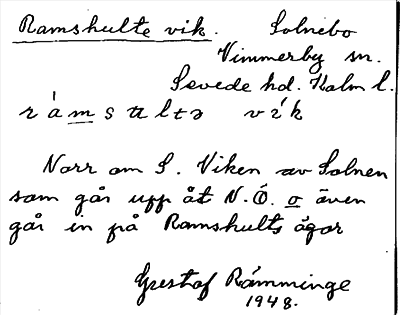 Ramshulte vik. Solnebo
Vimmerby sn.
Sevede hd. Kalm l.
rámsultə vík
Norr om S. Viken av Solnen
som går upp åt N.Ö. o även
går in på Ramshults ägor
Gustaf Rämminge
1948.